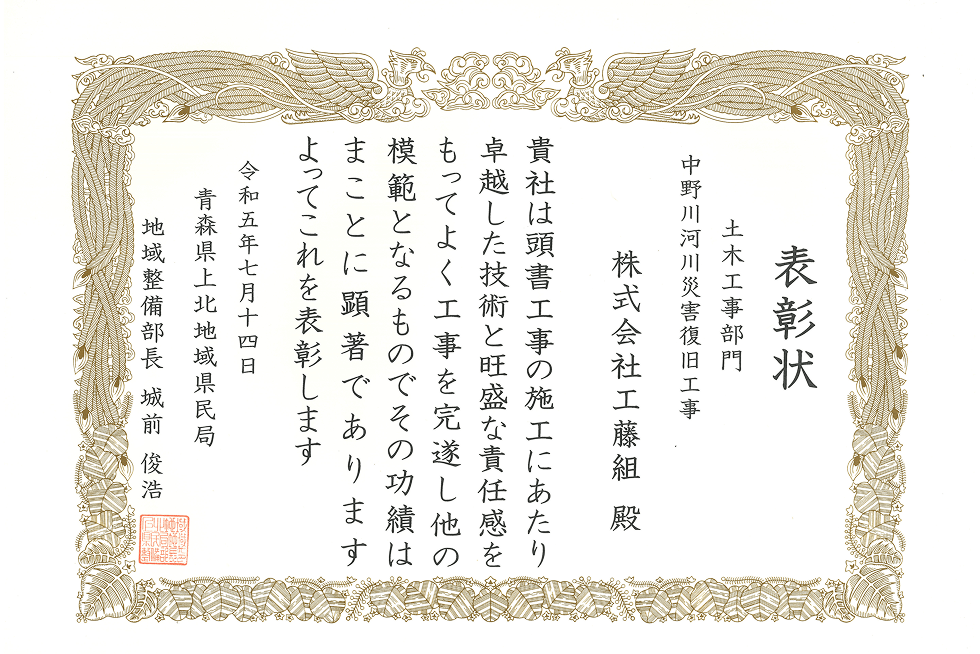 表彰状
土木工事部門
中野川河川災害復旧工事
株式会社工藤組 殿
貴社は頭書工事の施工にあたり
卓越した技術と旺盛な責任感を
もってよく工事を完遂し他の
模範となるものでその功績は
まことに顕著であります
よってこれを表彰します
令和五年七月十四日
青森県上北地域県民局
地域整備部長 城前 俊浩